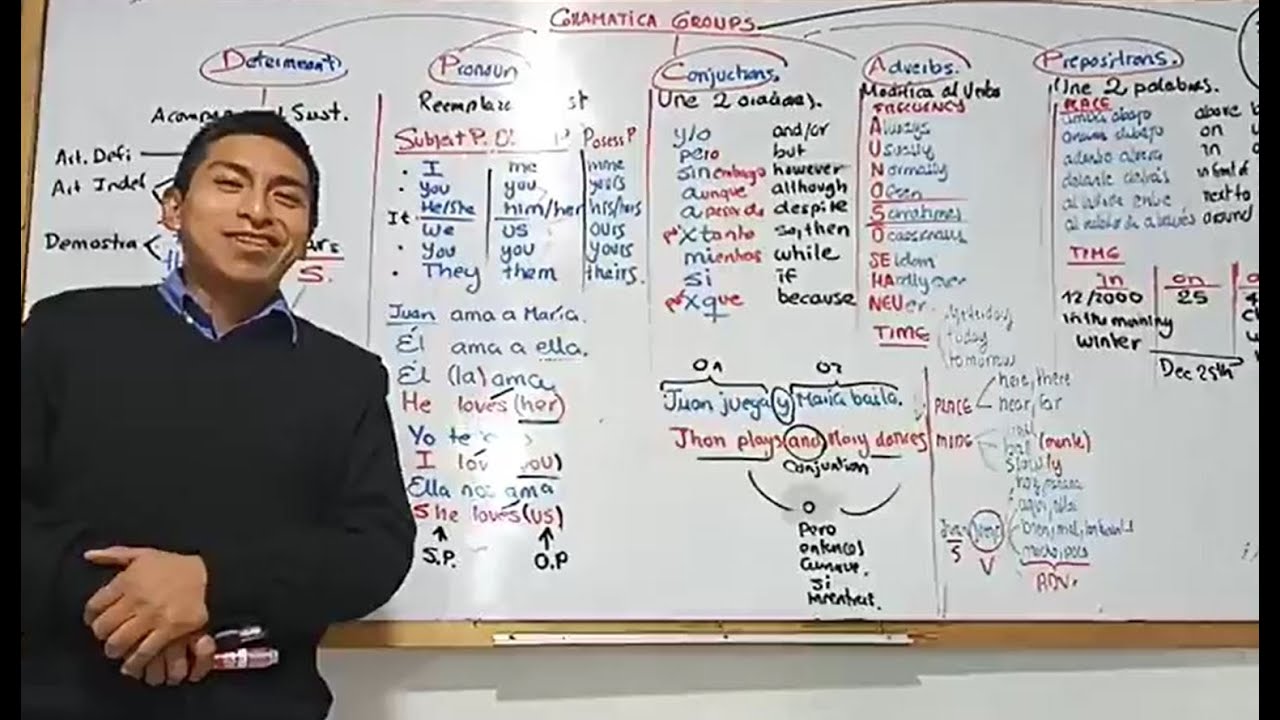 GRAMATICA GROUPS
Determinant
Acompa al Sust.
Art. Defi
Art Indef
Demostra
S.
Pronoun
Reemplaza st
Subject P. O P Possess P
I me mine
You you yours
He/She him/her his/hers
It
We us ours
You you yours
They them theirs.
Juan ama a María.
Él ama a ella.
Él (la) ama
He loves (her)
Yo te
I lov you)
Ella nos ama
She loves (us)
S.P. O.P
Conjuctions.
Une 2
y/o and/or
pero but
sin embargo however
aunque although
a pesar de despite
Xtanto so, then
mientras while
si if
Xque because
O1 O2
Juan juega y María baila.
Jhon plays and Mary dances
Conjuntion
O
Pero
entonces
aunque.
Si
mientras.
Adverbs.
Modifica al Verbo
FRECUENCY
Always
Usually
Normally
Often
Sometimes
Ocasionally
SEldom
HArdly ever
NEVer.
TIME
yesterday
today
tomorrow
PLACE
here, there
near, far
(mente)
slowly
S V
mucho, poco
ADV.
Prepositions.
Une 2 palabras.
PLACE
above
on
in
in front of
next to
around
TIME
in on
12/2000 25
in the morning
winter
Dec 25th